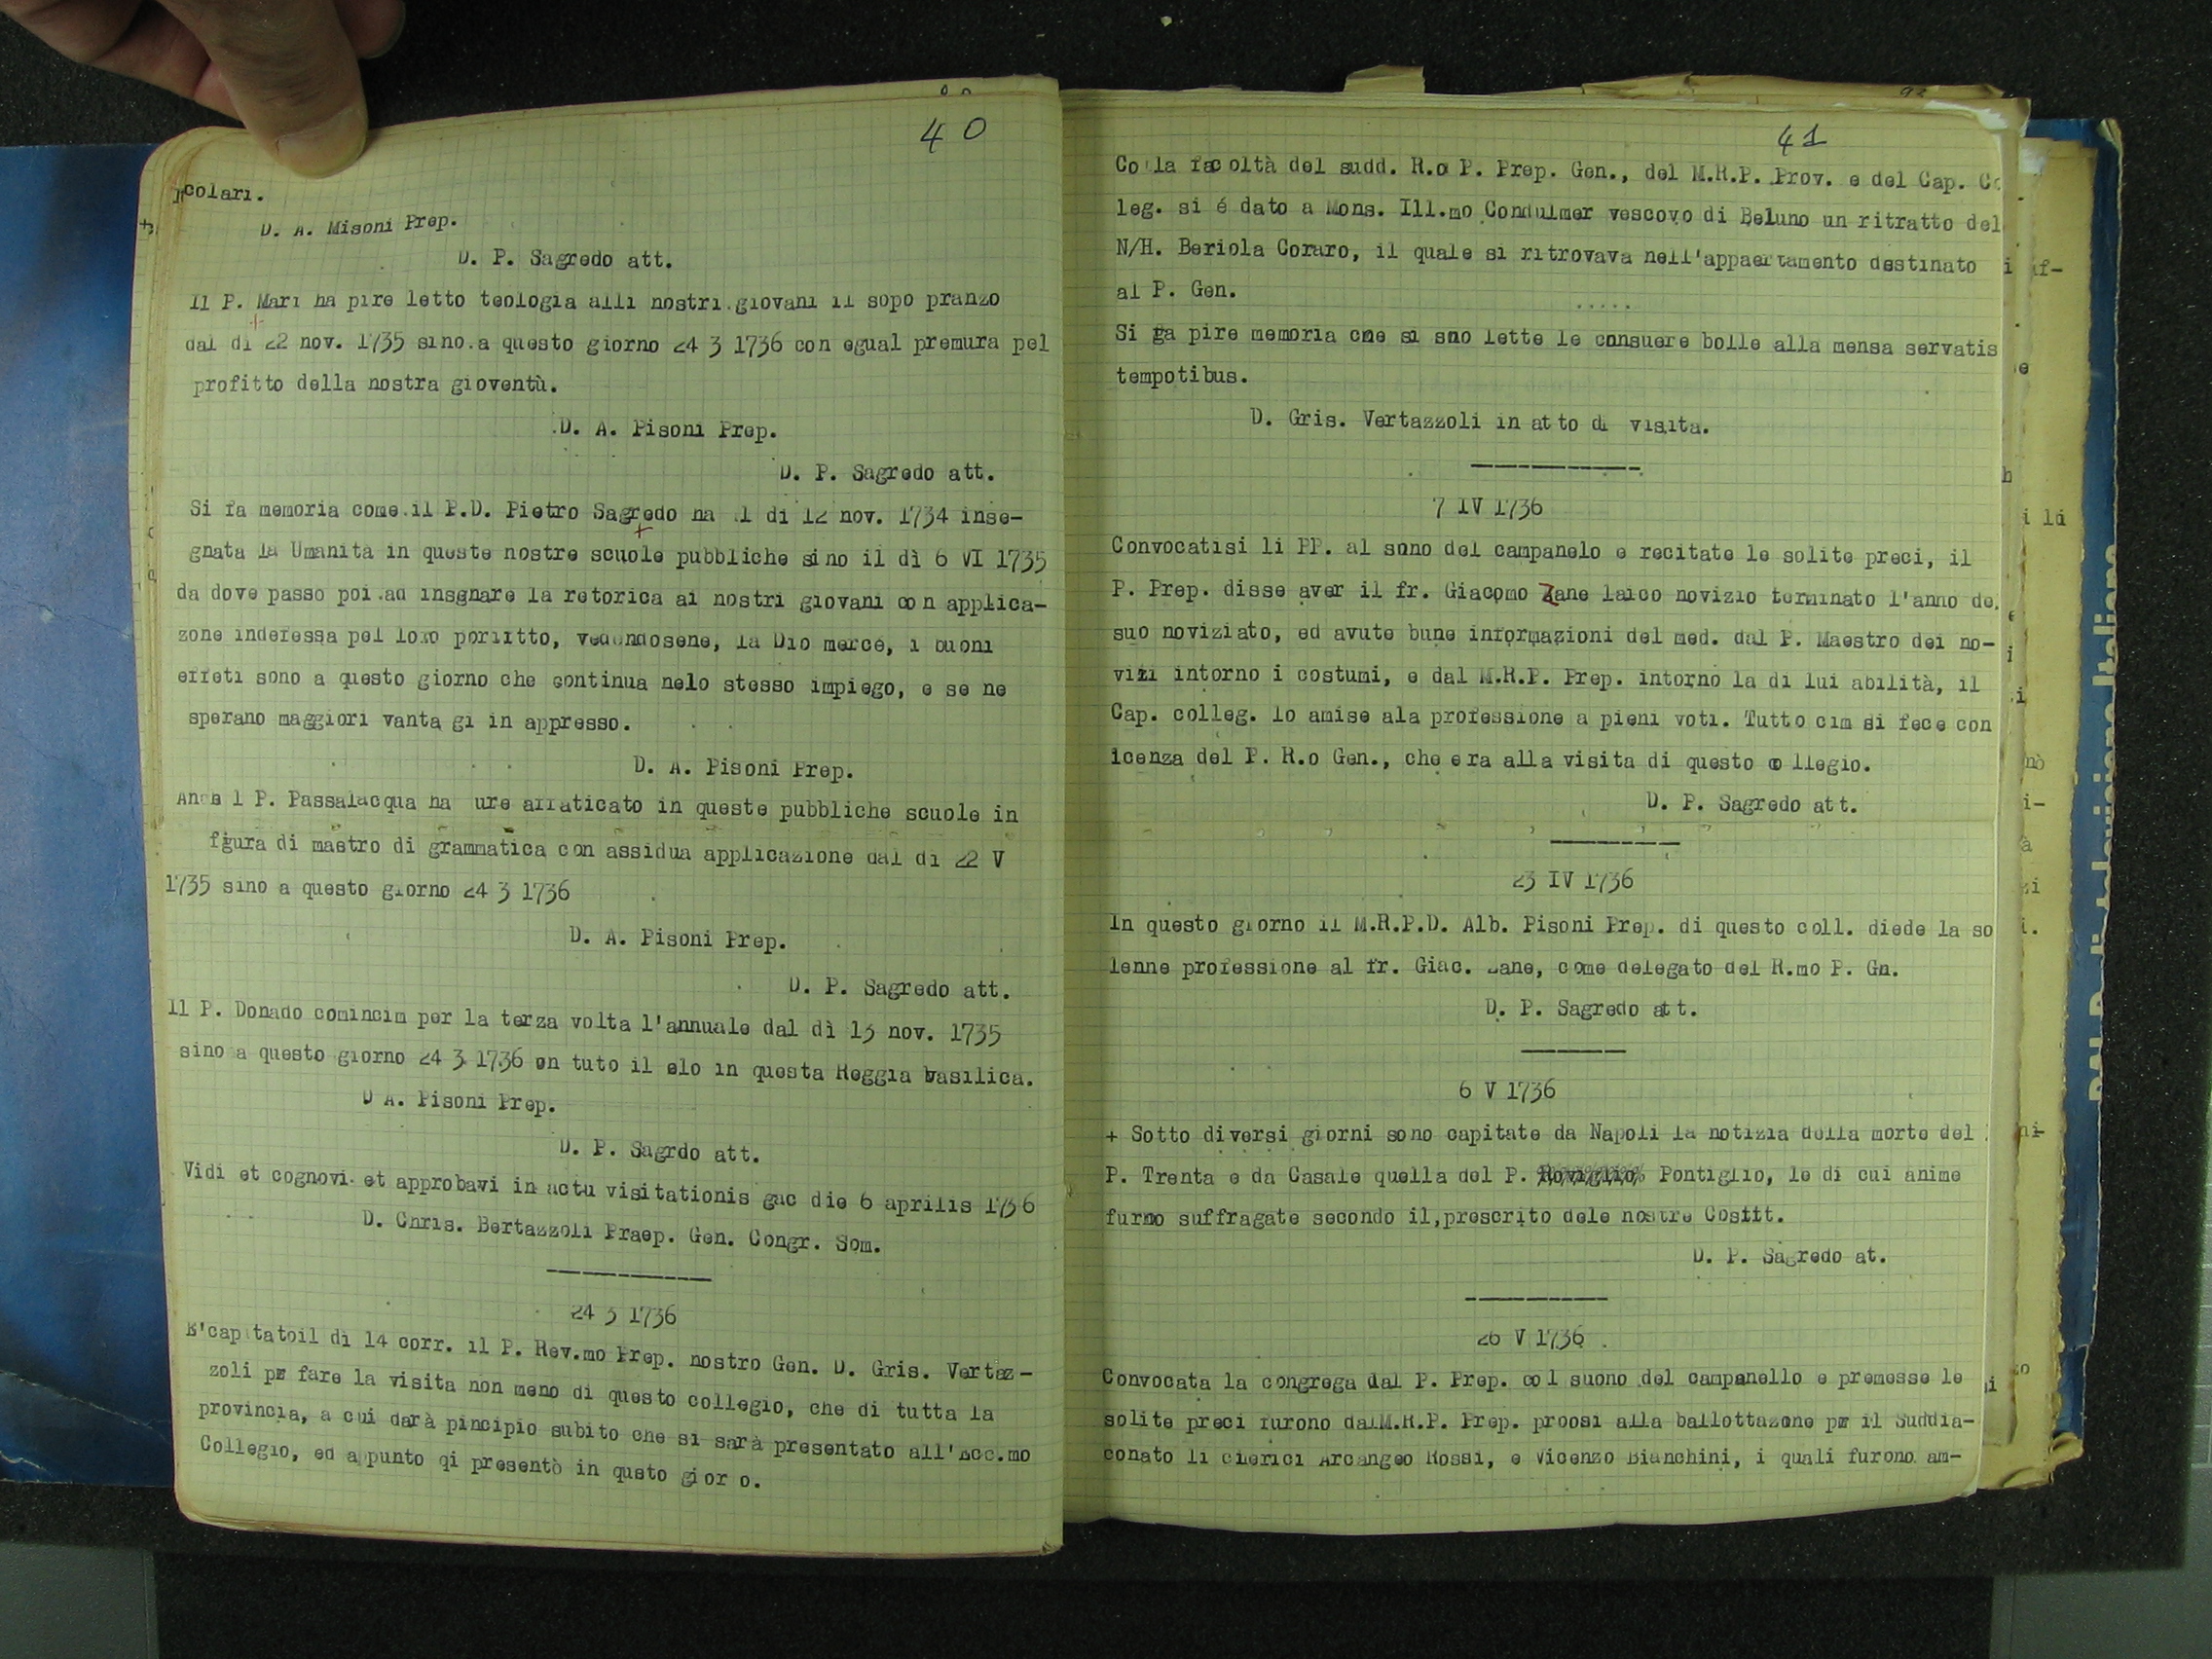 40
colari.
D. A. Misoni Prep.
D. P. Sagredo att.
Il P. Mari ha pire letto teologia alli nostri giovani il sopo pranzo
dal di 22 nov. 1735 sino a questo giorno 24 3 1736 con egual premura pel
profitto della nostra gioventù.
D. A. Pisoni Prep.
D. P. Sagredo att.
Si fa memoria come il P.D. Pietro Sagredo ha l di 12 nov. 1734 inse-
gnata la Umanità in queste nostre scuole pubbliche sino il dì 6 VI 1735
da dove passo poi ad insgnare la retorica ai nostri giovani con applica-
zone indefessa pel loro porfitto, vedendosene, la Dio mercé, i buoni
effeti sono a questo giorno che continua nelo stesso impiego, e se ne
sperano maggiori vanta gi in appresso.
D. A. Pisoni Prep.
l P. Passalacqua ha ure affaticato in queste pubbliche scuole in
fgura di mastro di grammatica con assidua applicazione dal di 22 V
1735 sino a questo giorno 24 3 1736
D. A. Pisoni Prep.
D. P. Sagredo att.
Il P. Donado comincim per la terza volta l'annuale dal dì 13 nov. 1735
sino a questo giorno 24 3 1736 on tuto il elo in questa Reggia basilica.
D A. Pisoni Prep.
D. P. Sagrdo att.
Vidi et cognovi et approbavi in actu visitationis gac die 6 aprilis 1736
D. Chris. Bertazzoli Praep. Gen. Congr. Som.
24 3 1736
E'capitatoil di 14 corr. il P. Rev.mo Prep. nostro Gen. D. Gris. Vertaz-
zoli per fare la visita non meno di questo collegio, che di tutta la
provincia, a cui darà pincipio subito che si sarà presentato all'Ecc.mo
Collegio, ed appunto qi presentò in qusto gior o.
41
Co la facoltà del sudd. R.o P. Prep. Gen., del M.R.P. Prov. e del Cap. Co
leg. si é dato a Mons. Ill.mo Condulmer vescovo di Beluno un ritratto del
N/H. Beriola Coraro, il quale si ritrovava nell'appaertamento destinato
al P. Gen.
.....
Si ga pire memoria cne si sno lette le consuere bolle alla mensa servatis
tempotibus.
D. Gris. Vertazzoli in atto di visita.
7 IV 1736
Convocatisi li PP. al sono del campanelo e recitate le solite preci, il
P. Prep. disse aver il fr. Giacomo Zane laico novizio terminato l'anno de
suo noviziato, ed avute bune informazioni del med. dal P. Maestro dei no-
vizi intorno i costumi, e dal M.R.P. Prep. intorno la di lui abilità, il
Cap. colleg. lo amise ala professione a pieni voti. Tutto cim si fece con
icenza del P. R.o Gen., che era alla visita di questo collegio.
D. P. Sagredo att.
23 IV 1736
In questo giorno il M.R.P.D. Alb. Pisoni Prep. di questo coll. diede la so
lenne professione al fr. Giac. Zane, come delegato del R.mo P. Gn.
D. P. Sagredo att.
6 V 1736
+ Sotto diversi giorni sono capitate da Napoli la notizia della morte del
P. Trenta e da Casale quella del P. Pontiglio, le di cui anime
furno suffragate secondo il prescrito dele nostre Costit.
D. P. Sagredo at.
26 V 1736
Convocata la congrega dal P. Prep. col suono del campanello e premesse le
solite preci furono dalM.R.P. Prep. proosi alla ballottazone per il Suddia-
conato li clerici Arcangeo Rossi, e Vicenzo Bianchini, i quali furono am-